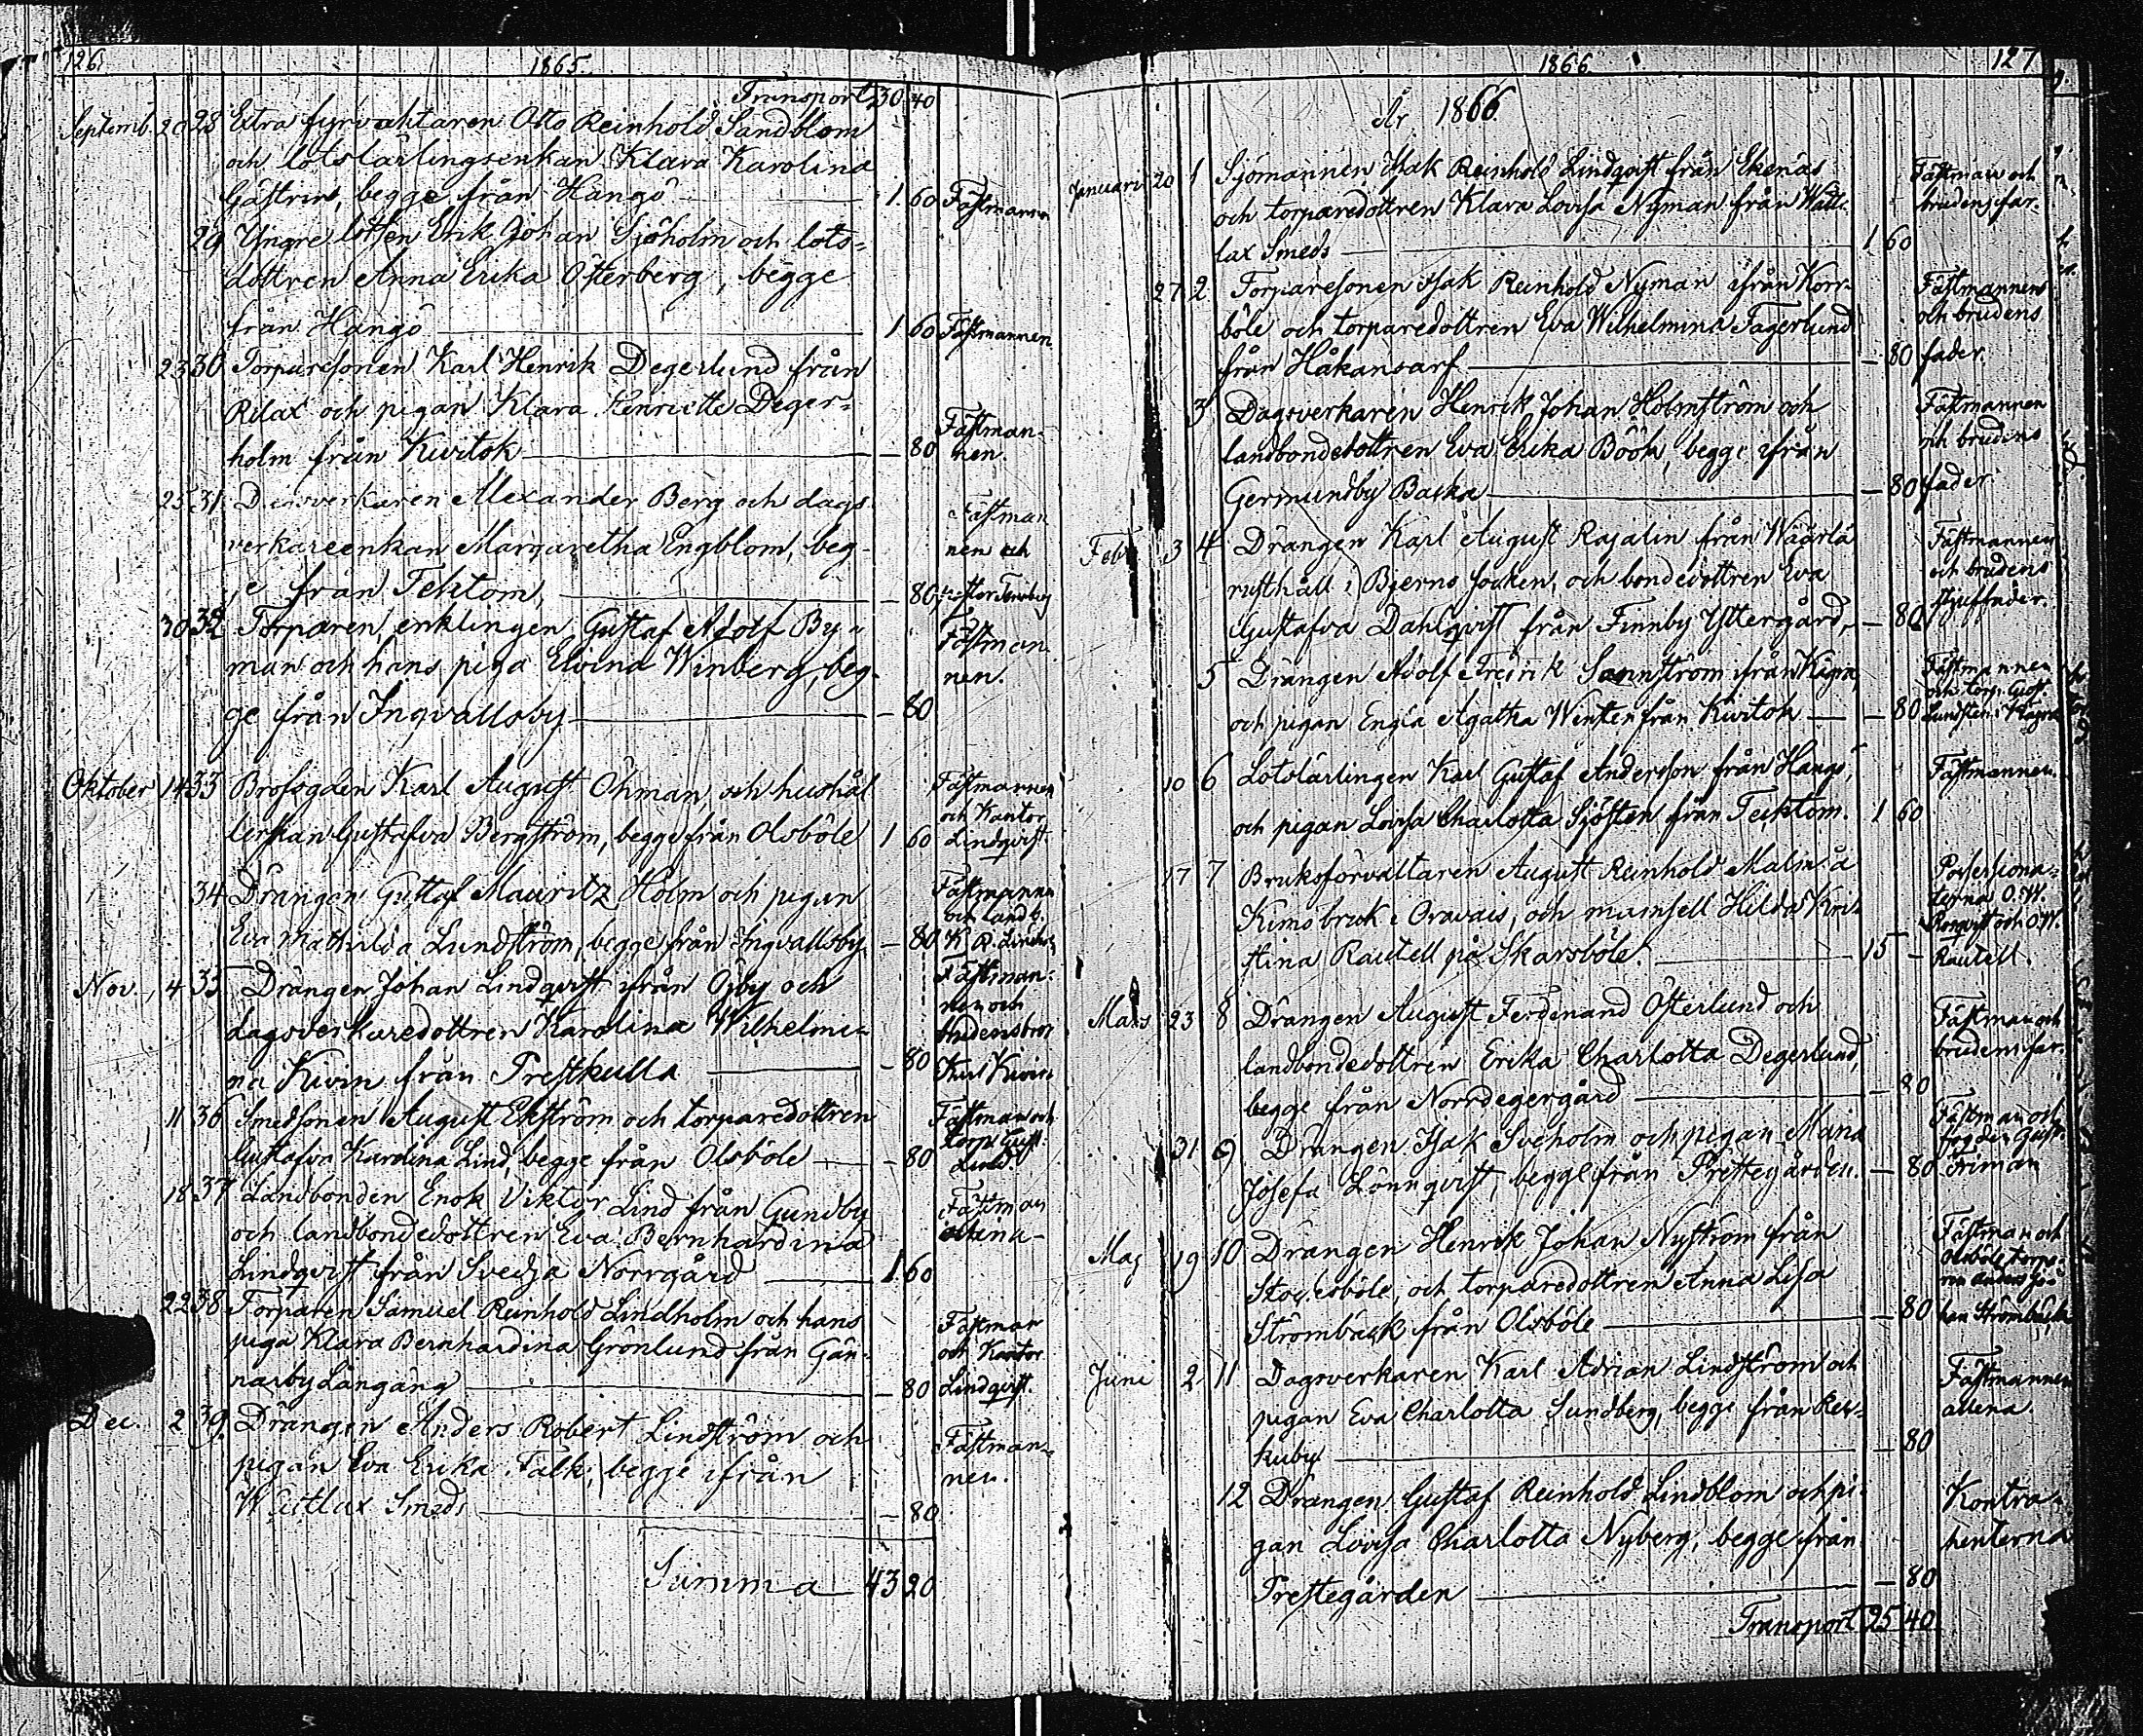 126.
1865.
Transport 30 40
Septemb. 20 28 Extra fyrvaktaren Otto Reinhold Sandblom
och lotslärlingsenkan Klara Karolina
Gästrin, begge från Hangö 1 60 Fästmannen
29 Yngre lotsen Erik Johan Sjöholm och lots-
dottren Anna Erika Österberg, begge
från Hangö 1 60 Fästmannen
23 30 Torparesonen Karl Henrik Degerlund från
Rilax och pigan Klara Henriette Deger- Fästman-
holm från Kivitok — 80 nen.
25 31 Dagsverkaren Alexander Berg och dags- Fästman
verkareenkan Margaretha Engblom, beg- nen och
ge från Tektom, — 80
30 32 Torparen, enklingen Gustaf Adolf By- Fästman-
man och hans piga Elvina Winberg, beg- nen.
ge från Ingvallsby — 80
Oktober 14 33 Brofogden Karl August Öhman, och hushål Fästmannen
lerskan Gustafva Bergström, begge från Olsböle 1 60 och Kantor Lindqvist.
34 Drängen Gustaf Mauritz Holm och pigan Fästmannen
Eva Mathilda Lundström, begge från Ingvallsby — 80 och landb. K. R.
Nov. 4 35 Drängen Johan Lindqvist ifrån Öjby och Fästman-
dagsverkaredottren Karolina Wilhelmi- nen och
na Kivin från Prestkulla — 80 Karl Kivin
11 36 Smedsonen August Ekström och torparedottren Fästman och
Gustafva Karolina Lind, begge från Olsböle — 80 torp. Gust. Lind.
18 37 Landbonden Enok Viktor Lind från Gundby Fästman
och landbondedottren Eva Bernhardina allena-
Lindqvist från Svedja Norrgård 1 60
22 38 Torparen Samuel Reinhold Lindholm och hans Fästman
piga Klara Bernhardina Grönlund från Gän- och Kantor
narby Långäng — 80 Lindqvist.
Dec. 2 39. Drängen Anders Robert Lindström och Fästman-
pigan Eva Erika Falk, begge ifrån nen.
Westlax Smeds — 80
Summa 43 20
1866
127
År 1866.
Januari 20 1 Sjömannen Isak Reinhold Lindqvist från Ekenäs Fästman och
och torparedottren Klara Lovisa Nyman från Wätt- brudens far.
lax Smeds 1 60
27 2 Torparesonen Isak Reinhold Nyman ifrån Korr- Fästmannen
böle och torparedottren Eva Wilhelmina Fagerlund och brudens
från Håkansarf — 80 fader.
3 Dagsverkaren Henrik Johan Holmström och Fästmannen
landbondedottren Eva Erika Böök, begge ifrån och brudens
Germundby Backa — 80 fader
Feb. 3 4 Drängen Karl August Rajalin från Wäärlä Fästmannen
rusthåll i Bjerno socken, och bondedottren Eva och brudens
Gustafva Dahlqvist från Finnby Yttergård, — 80 styffader.
5 Drängen Adolf Fredrik Sannström ifrån Kägra, Fästmannen
och pigan Engla Agatha Winter från Kivitok — 80 och torp. Gust. Lundsten i Kägra
10 6 Lotslärlingen Karl Gustaf Andersson från Hangö, Fästmannen.
och pigan Lovisa Charlotta Sjösten från Tecktom. 1 60
17 7 Bruksförvaltaren August Reinhold Malm å Possessiona-
Kimo bruk i Oravais, och mamsell Hilda Kri- terna O.W.
stina Rautell på Skarsböle. 15 — och O.W. Rautell.
Mars 23 8 Drängen August Ferdinand Österlund och Fästman och
landbondedottren Erika Charlotta Degerlund, brudens far.
begge från Norrdegergård — 80
31 9 Drängen Isak Sveholm och pigan Maria Fästman och
Josefa Lönnqvist, begge från Prestegården. — 80 fogden Gust. Öhman
Maj 19 10 Drängen Henrik Johan Nyström från Fästman och
böle, och torparedottren Anna Lisa Olsböle torpa-
Strömbäck från Olsböle — 80 ren Anders Jo- han Strömbäck
Juni 2 11 Dagsverkaren Karl Adrian Lindström och Fästmannen
pigan Eva Charlotta Sundberg, begge från Rek- allena.
kuby — 80
12 Drängen Gustaf Reinhold Lindblom och pi- Kontra-
gan Lovisa Charlotta Nyberg, begge från henterna
Prestegården — 80
Transport 25 40